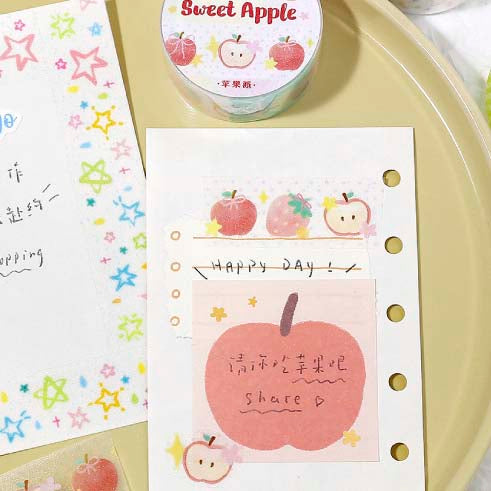 Sweet Apple
·苹果派·
作
赴约
opping
HAPPY DAY!
请你吃苹果吧
share